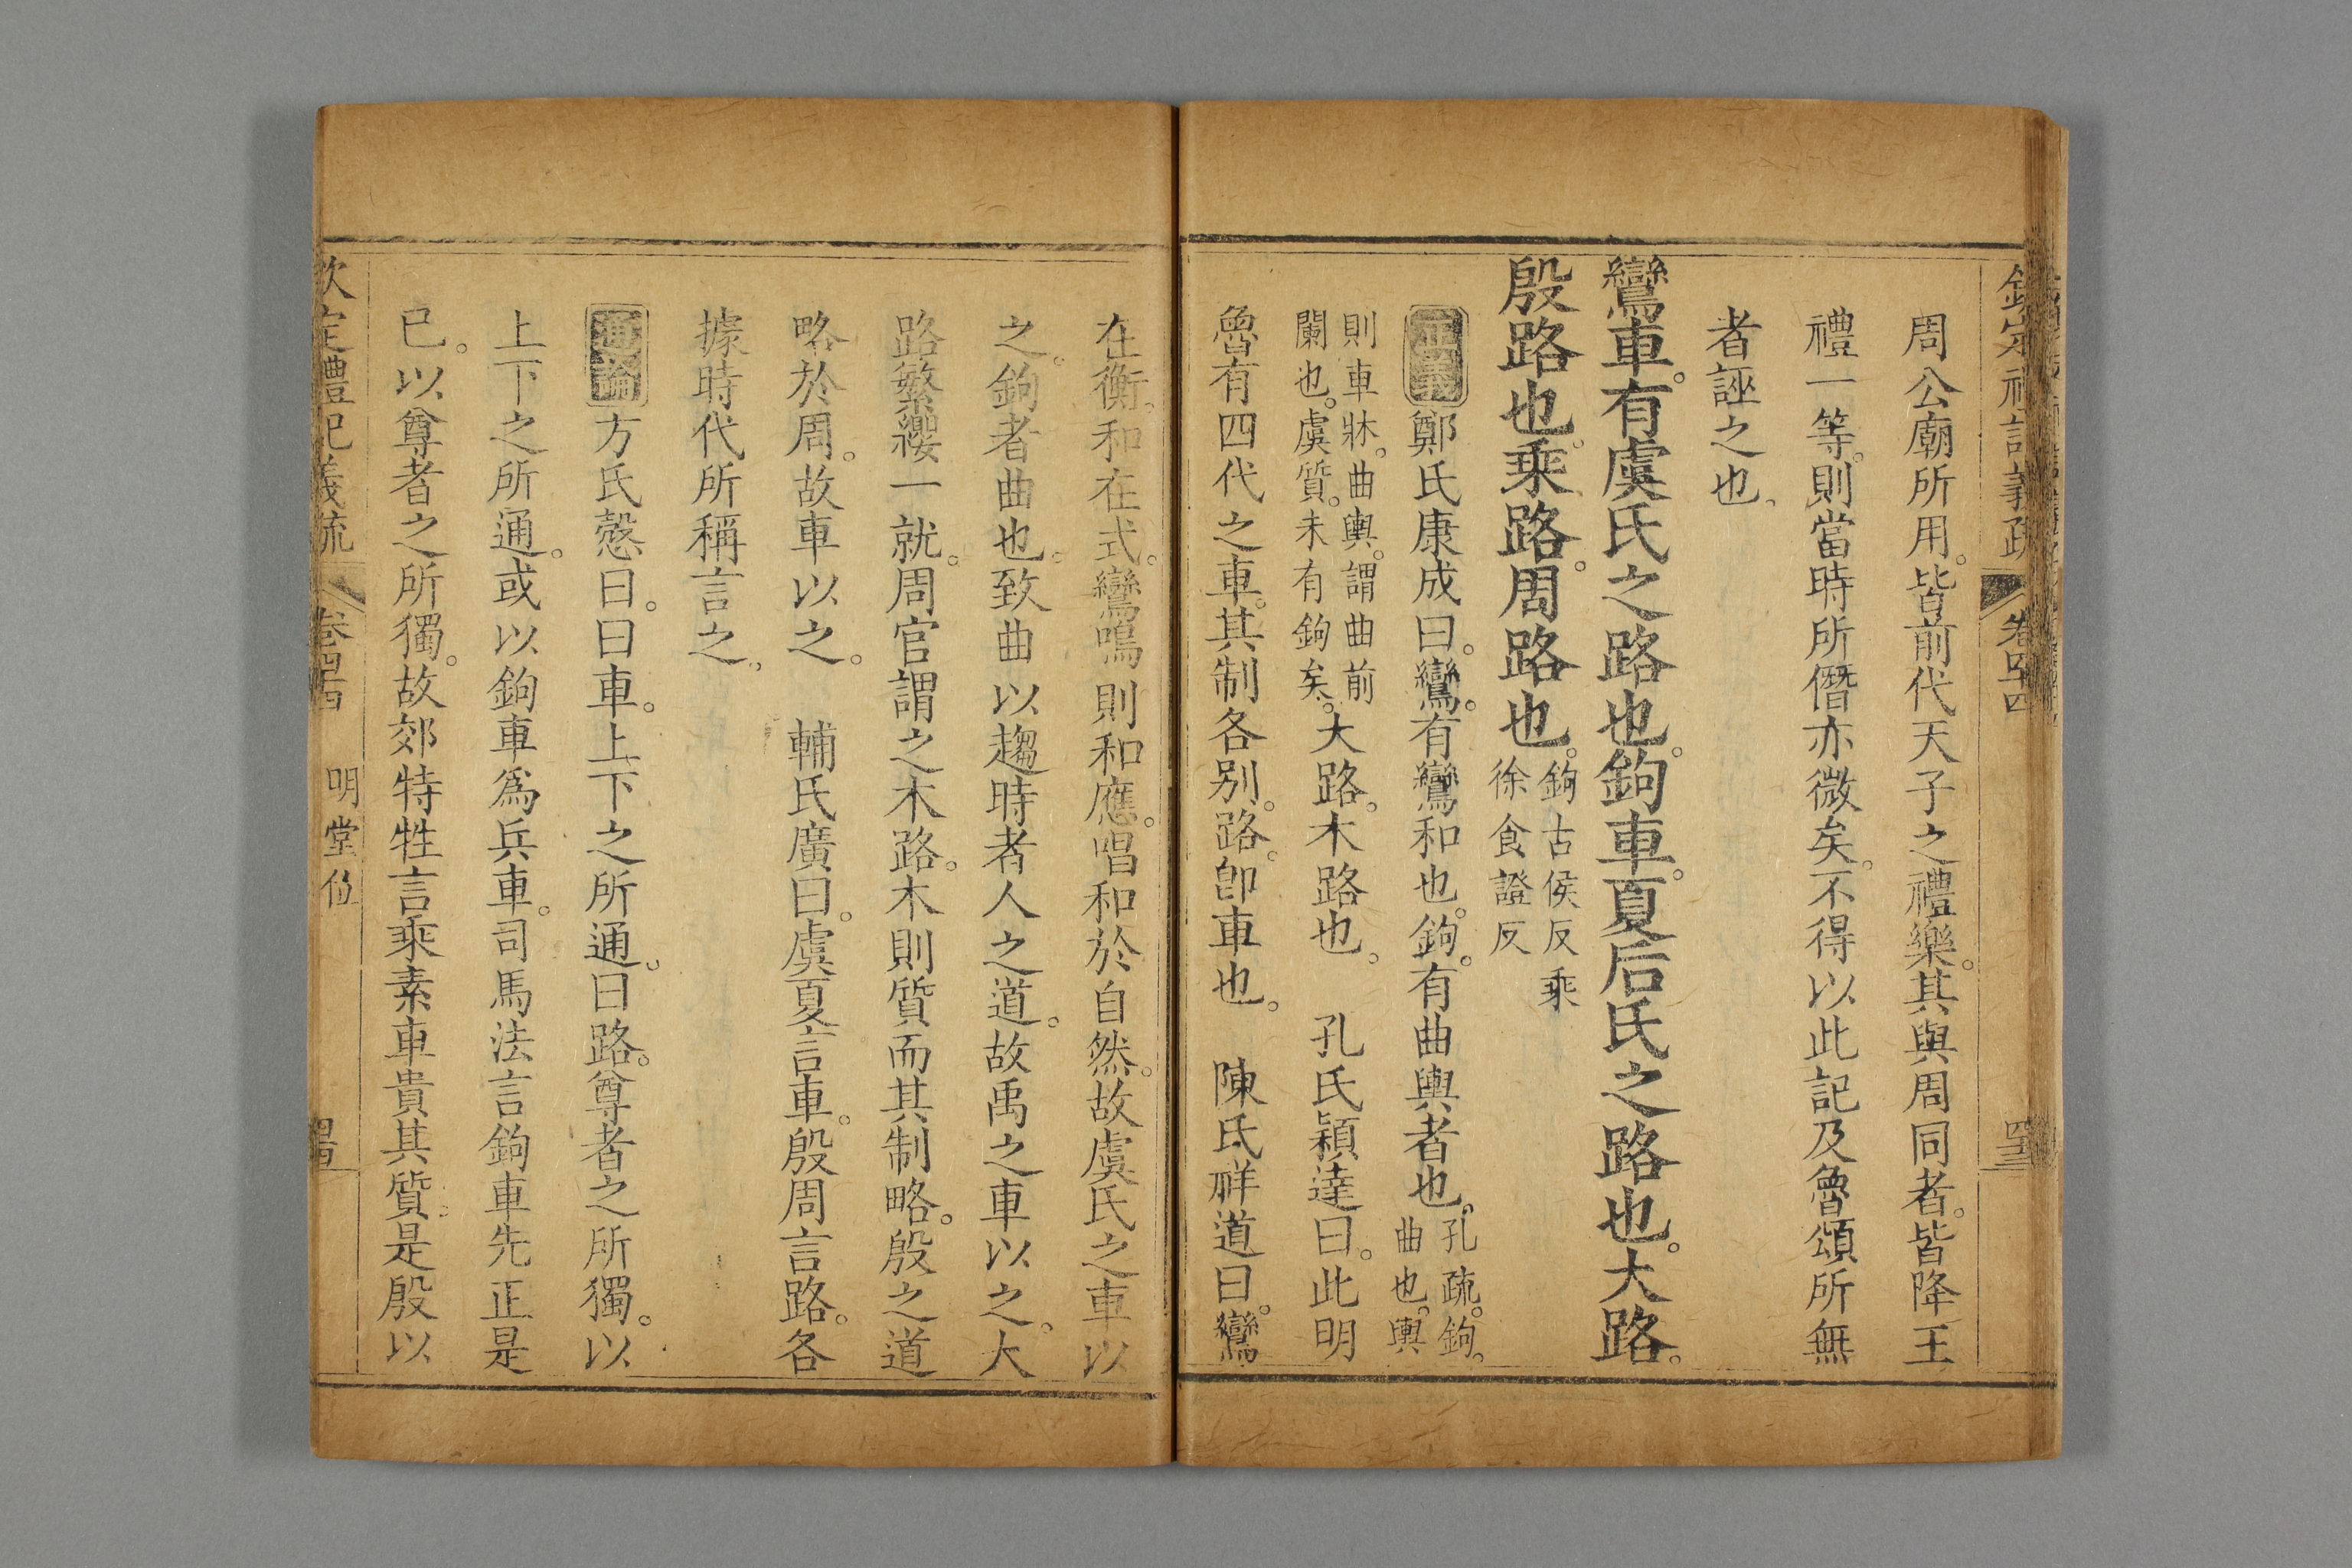 周公廟所用。皆前代天子之禮樂。其與周同者。皆降王
禮一等。則當時所僭亦微矣。不得以此記及魯頌所無
者誣之也。
鸞車。有虞氏之路也。鉤車。夏后氏之路也。大路。
殷路也。乘路。周路也。鉤古侯反乘
徐食證反
正義鄭氏康成曰。鸞。有鸞和也。鉤。有曲輿者也。孔疏。鉤。
曲也。輿
則車牀。曲輿。謂曲前
闌也。虞質。未有鉤矣。大路。木路也。 孔氏穎達曰。此明
魯有四代之車。其制各別。路。卽車也。 陳氏祥道曰。鸞
在衡。和在式。鸞鳴則和應。唱和於自然。故虞氏之車以
之。鉤者曲也。致曲以趨時者人之道。故禹之車以之。大
路繁纓一就。周官謂之木路。木則質而其制略。殷之道
略於周。故車以之。 輔氏廣曰。虞夏言車。殷周言路。各
據時代所稱言之。
通論方氏慤曰。曰車。上下之所通。曰路。尊者之所獨。以
上下之所通。或以鉤車爲兵車。司馬法言鉤車先正是
已。以尊者之所獨。故郊特牲言乘素車貴其質。是殷以
欽定禮記義疏 卷四十四 明堂位